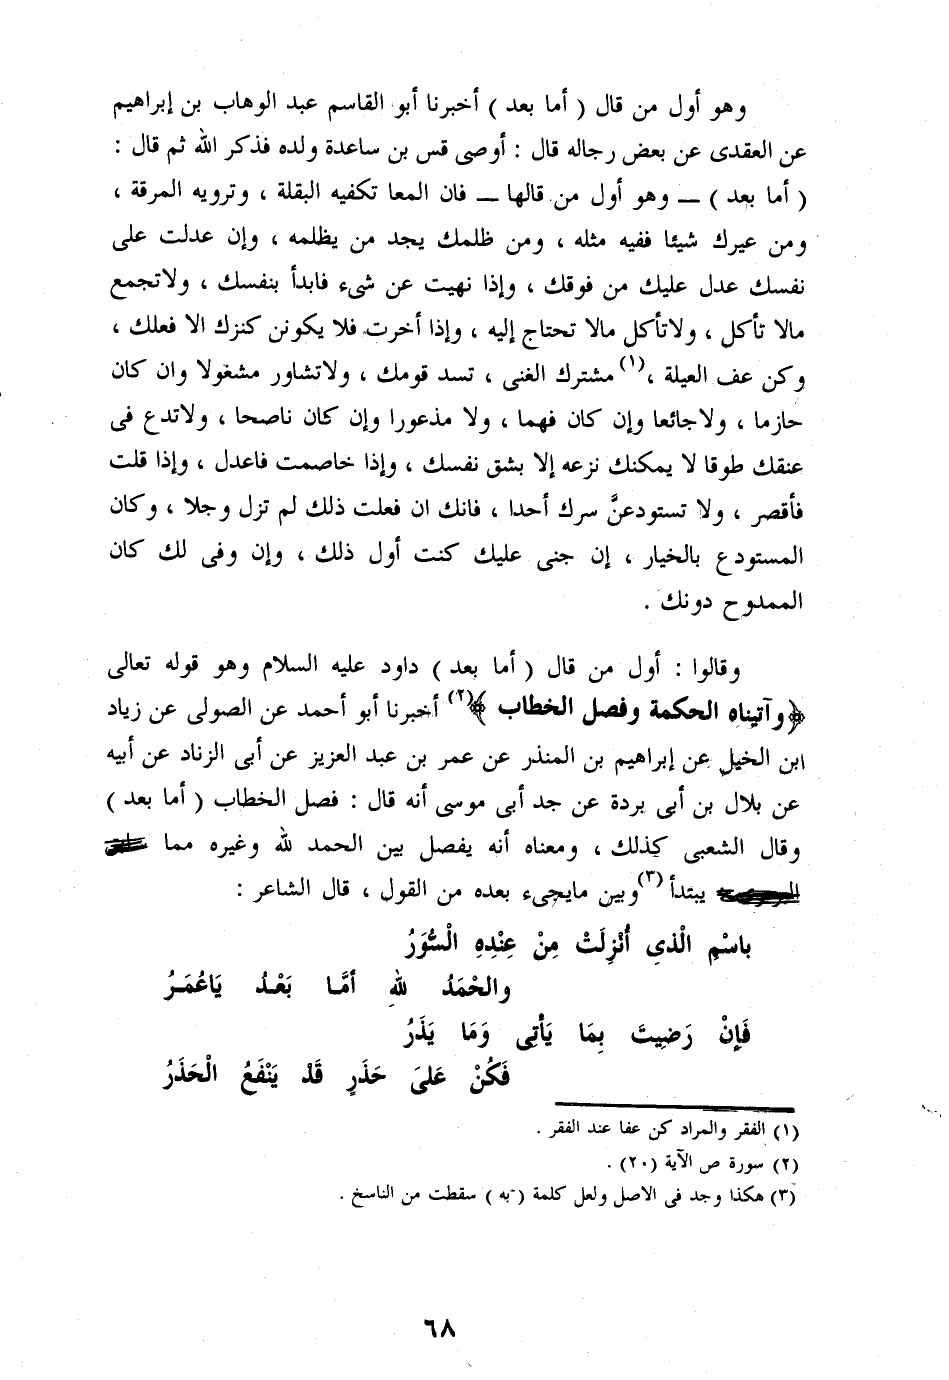 وهو أول من قال ( أما بعد ) أخبرنا أبو القاسم عبد الوهاب بن إبراهيم
عن العقدى عن بعض رجاله قال : أوصى قس بن ساعدة ولده فذكر الله ثم قال :
( أما بعد ) ــ وهو أول من قالها ــ فان المعا تكفيه البقلة ، وترويه المرقة ،
ومن عيرك شيئا ففيه مثله ، ومن ظلمك يجد من يظلمه ، وإن عدلت على
نفسك عدل عليك من فوقك ، وإذا نهيت عن شىء فابدأ بنفسك ، ولاتجمع
مالا تأكل ، ولاتأكل مالا تحتاج إليه ، وإذا أخرت فلا يكونن كنزك الا فعلك ،
وكن عف العيلة ،(١) مشترك الغنى ، تسد قومك ، ولاتشاور مشغولا وان كان
حازما ، ولاجائعا وإن كان فهما ، ولا مذعورا وإن كان ناصحا ، ولاتدع فى
عنقك طوقا لا يمكنك نزعه إلا بشق نفسك ، وإذا خاصمت فاعدل ، وإذا قلت
فأقصر ، ولا تستودعنَّ سرك أحدا ، فانك ان فعلت ذلك لم تزل وجلا ، وكان
المستودع بالخيار ، إن جنى عليك كنت أول ذلك ، وإن وفى لك كان
الممدوح دونك .
وقالوا : أول من قال ( أما بعد ) داود عليه السلام وهو قوله تعالى
﴿وآتيناه الحكمة وفصل الخطاب ﴾(٢) أخبرنا أبو أحمد عن الصولى عن زياد
ابن الخيل عن إبراهيم بن المنذر عن عمر بن عبد العزيز عن أبى الزناد عن أبيه
عن بلال بن أبى بردة عن جد أبى موسى أنه قال : فصل الخطاب ( أما بعد )
وقال الشعبى كذلك ، ومعناه أنه يفصل بين الحمد لله وغيره مما
يبتدأ (٣) وبين مايجىء بعده من القول ، قال الشاعر :
باسْمِ الْذىِ أُنْزِلَتْ مِنْ عِنْدِهِ الْسُّوَرُ
والحْمَدُ للهِ أمَّـا بَعْـدُ يَاعُمَـرُ
فَإنْ رَضِيتَ بِمَا يَأتِى وَمَا يَذَرُ
فَكُنْ عَلىَ حَذَرٍ قَدْ يَنْفَعُ الْحَذَرُ
(١) الفقر والمراد كن عفا عند الفقر .
(٢) سورة ص الآية (٢٠) .
(٣) هكذا وجد فى الاصل ولعل كلمة ( به ) سقطت من الناسخ .
٦٨